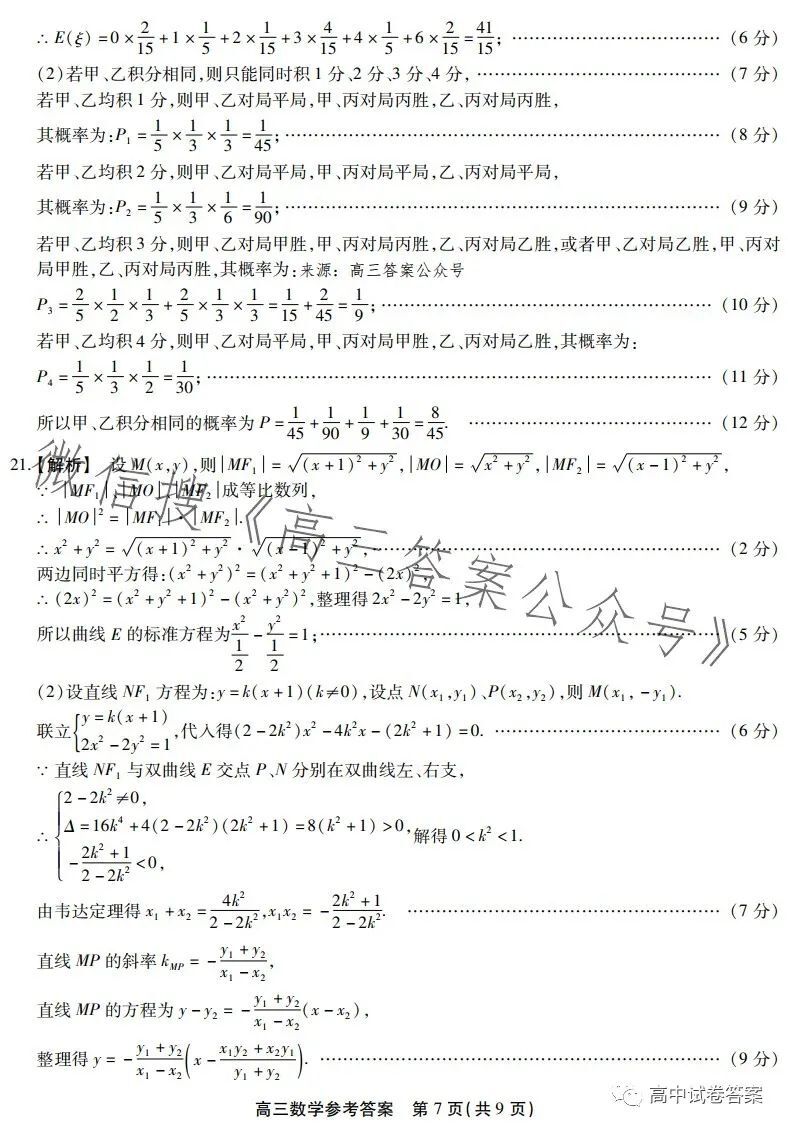 ∴ E(ξ) = 0 × 2/15 + 1 × 1/5 + 2 × 1/15 + 3 × 4/15 + 4 × 1/5 + 6 × 2/15 = 41/15; …………………………… (6 分)
(2)若甲、乙积分相同,则只能同时积 1 分、2 分、3 分、4 分, …………………………… (7 分)
若甲、乙均积 1 分,则甲、乙对局平局,甲、丙对局丙胜,乙、丙对局丙胜,
其概率为:P₁ = 1/5 × 1/3 × 1/3 = 1/45; …………………………… (8 分)
若甲、乙均积 2 分,则甲、乙对局平局,甲、丙对局平局,乙、丙对局平局,
其概率为:P₂ = 1/5 × 1/3 × 1/6 = 1/90; …………………………… (9 分)
若甲、乙均积 3 分,则甲、乙对局甲胜,甲、丙对局丙胜,乙、丙对局乙胜,或者甲、乙对局乙胜,甲、丙对
局甲胜,乙、丙对局丙胜,其概率为:来源: 高三答案公众号
P₃ = 2/5 × 1/2 × 1/3 + 2/5 × 1/3 × 1/3 = 1/15 + 2/45 = 1/9; …………………………… (10 分)
若甲、乙均积 4 分,则甲、乙对局平局,甲、丙对局甲胜,乙、丙对局乙胜,其概率为:
P₄ = 1/5 × 1/3 × 1/2 = 1/30; …………………………… (11 分)
所以甲、乙积分相同的概率为 P = 1/45 + 1/90 + 1/9 + 1/30 = 8/45. …………………………… (12 分)
21.【解析】 设 M(x,y),则|MF₁| = √((x+1)² + y²),|MO| = √(x² + y²),|MF₂| = √((x−1)² + y²),
∵ |MF₁|,|MO|,|MF₂|成等比数列,
∴ |MO|² = |MF₁|·|MF₂|.
∴ x² + y² = √((x+1)² + y²)·√((x−1)² + y²), …………………………… (2 分)
两边同时平方得:(x² + y²)² = (x² + y² + 1)² − (2x)²,
∴ (2x)² = (x² + y² + 1)² − (x² + y²)²,整理得 2x² − 2y² = 1,
所以曲线 E 的标准方程为 x²/(1/2) − y²/(1/2) = 1; …………………………… (5 分)
微信搜《高三答案公众号》
(2)设直线 NF₁ 方程为:y = k(x+1)(k≠0),设点 N(x₁,y₁)、P(x₂,y₂),则 M(x₁, −y₁).
联立{y = k(x+1) 2x² − 2y² = 1,代入得(2−2k²)x² − 4k²x − (2k²+1) = 0. …………………………… (6 分)
∵ 直线 NF₁ 与双曲线 E 交点 P、N 分别在双曲线左、右支,
∴ {2−2k²≠0,
Δ = 16k⁴ + 4(2−2k²)(2k²+1) = 8(k²+1) > 0,解得 0 < k² < 1.
−(2k²+1)/(2−2k²) < 0,
由韦达定理得 x₁ + x₂ = 4k²/(2−2k²),x₁x₂ = −(2k²+1)/(2−2k²). …………………………… (7 分)
直线 MP 的斜率 k_MP = −(y₁+y₂)/(x₁−x₂),
直线 MP 的方程为 y − y₂ = −(y₁+y₂)/(x₁−x₂)(x−x₂),
整理得 y = −(y₁+y₂)/(x₁−x₂)(x − (x₁y₂+x₂y₁)/(y₁+y₂)). …………………………… (9 分)
高中试卷答案
高三数学参考答案 第 7 页(共 9 页)